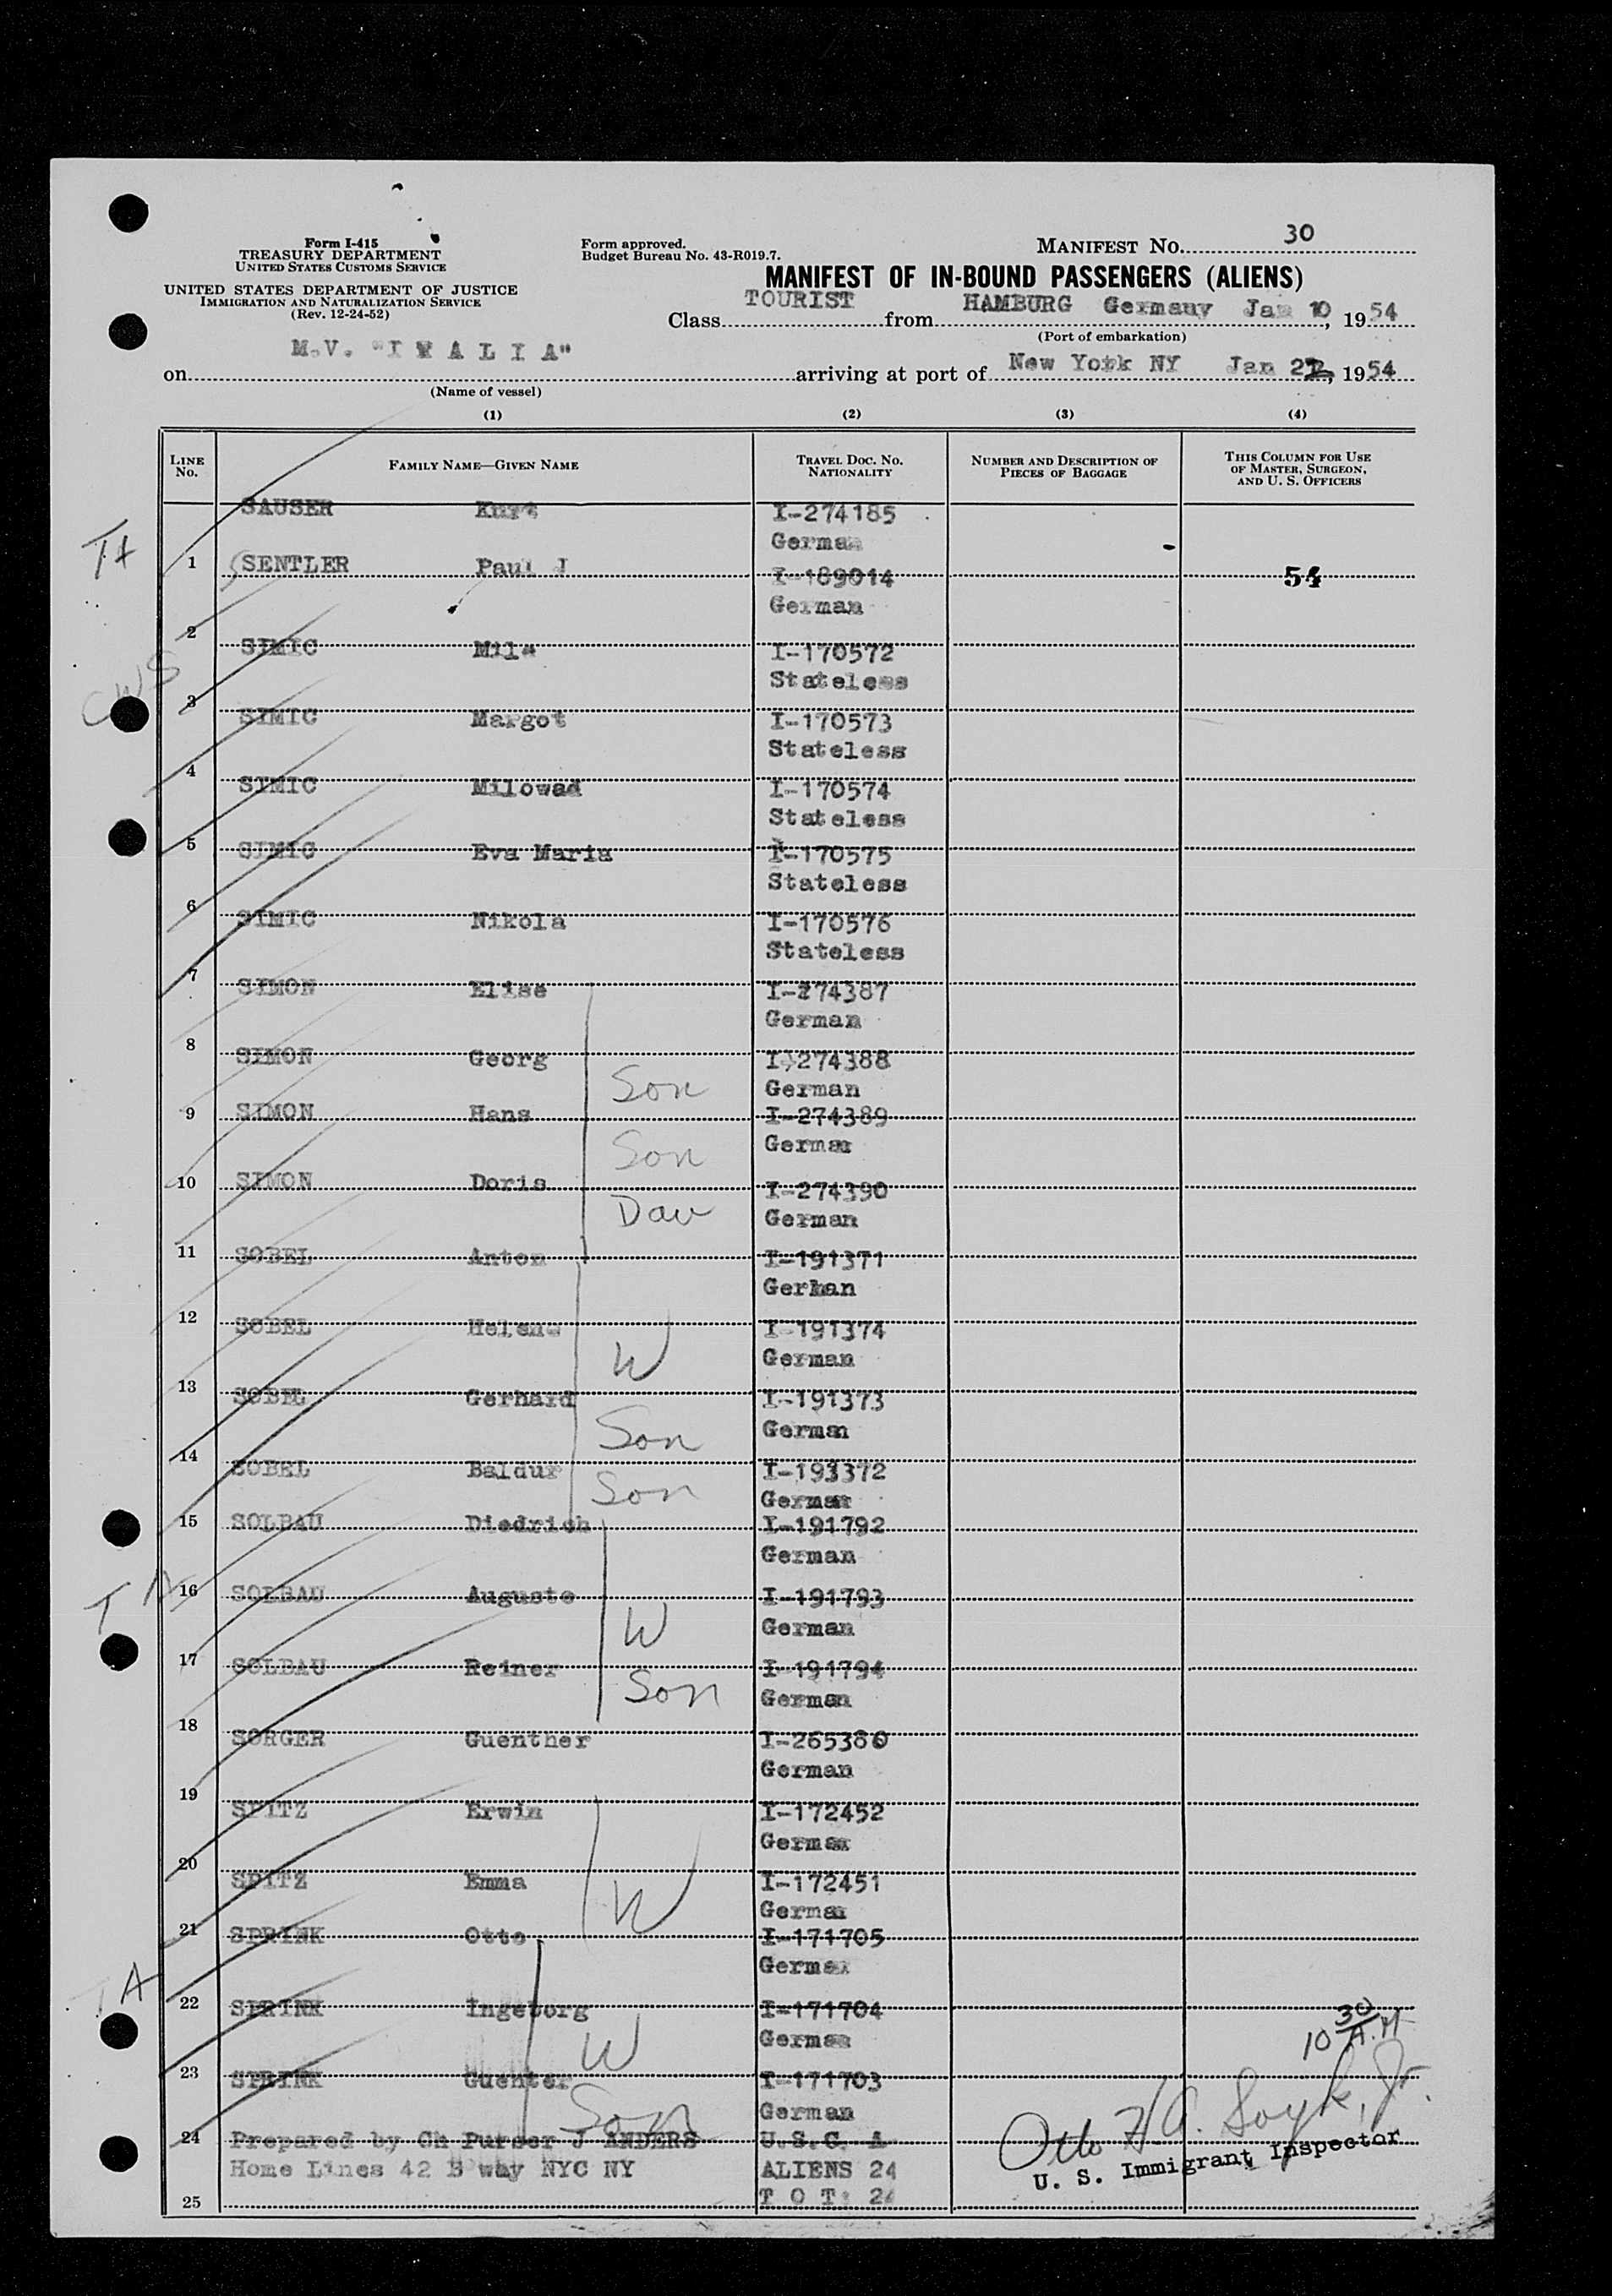 Form I-415
TREASURY DEPARTMENT
UNITED STATES CUSTOMS SERVICE
UNITED STATES DEPARTMENT OF JUSTICE
IMMIGRATION AND NATURALIZATION SERVICE
(Rev. 12-24-52)
Form approved.
Budget Bureau No. 43-R019.7.
MANIFEST No. 30
MANIFEST OF IN-BOUND PASSENGERS (ALIENS)
Class TOURIST from HAMBURG Germany Jan 10, 1954
(Port of embarkation)
on M.V. "I T A L I A" arriving at port of New York NY Jan 22, 1954
(Name of vessel)
(1) (2) (3) (4)
LINE No. FAMILY NAME—GIVEN NAME TRAVEL DOC. NO. NATIONALITY NUMBER AND DESCRIPTION OF PIECES OF BAGGAGE THIS COLUMN FOR USE OF MASTER, SURGEON, AND U. S. OFFICERS
SAUSER Kurt I-274185
German
1 SENTLER Paul J I-189014 54
German
2
SIMIC Mile I-170572
Stateless
CWS
3
SIMIC Margot I-170573
Stateless
4
SIMIC Milowad I-170574
Stateless
5
SIMIC Eva Maria I-170575
Stateless
6
SIMIC Nikola I-170576
Stateless
7
SIMON Elise I-274387
German
8
SIMON Georg I-274388
Son German
9 SIMON Hans I-274389
Son German
10 SIMON Doris I-274390
Dau German
11 SOBEL Anton I-191371
German
12
SOBEL Helene I-191374
W German
13
SOBEL Gerhard I-191373
Son German
14
SOBEL Baldur I-193372
Son German
15 SOLBAU Diedrich I-191792
German
16 SOLBAU Auguste I-191793
W German
17 SOLBAU Reiner I-191794
Son German
18
SORGER Guenther I-265380
German
19
SPITZ Erwin I-172452
German
20
SPITZ Emma I-172451
W German
21 SPRINK Otto I-171705
German
22 SPRINK Ingeborg I-171704
W German
10 30 A.M
23 SPRINK Guenter I-171703
Son German
24 Prepared by Ch Purser J ANDERS U.S.C.
Home Lines 42 B way NYC NY ALIENS 24
25 T O T: 24
Otto
U. S. Immigrant Inspector